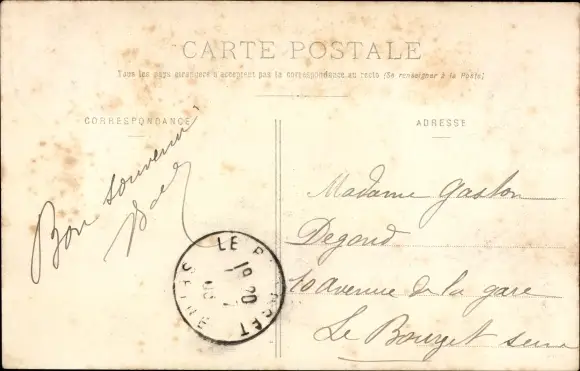 CARTE POSTALE
Tous les pays étrangers n'acceptent pas la correspondance au recto (Se renseigner à la Poste)
CORRESPONDANCE
ADRESSE
Bon souvenir
Madame Gaston
Degond
10 avenue de la gare
Le Bourget Seine
LE BOURGET
SEINE